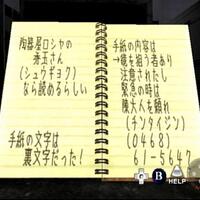 陶器屋ロシヤの
秀玉さん
(シュウギョク)
なら読めるらしい
手紙の文字は
裏文字だった!
手紙の内容は
→後を狙う者あり
注意されたし
緊急の時は
陳大人を頼れ
(チンタイジン)
(0468)
61-5647
B
HELP